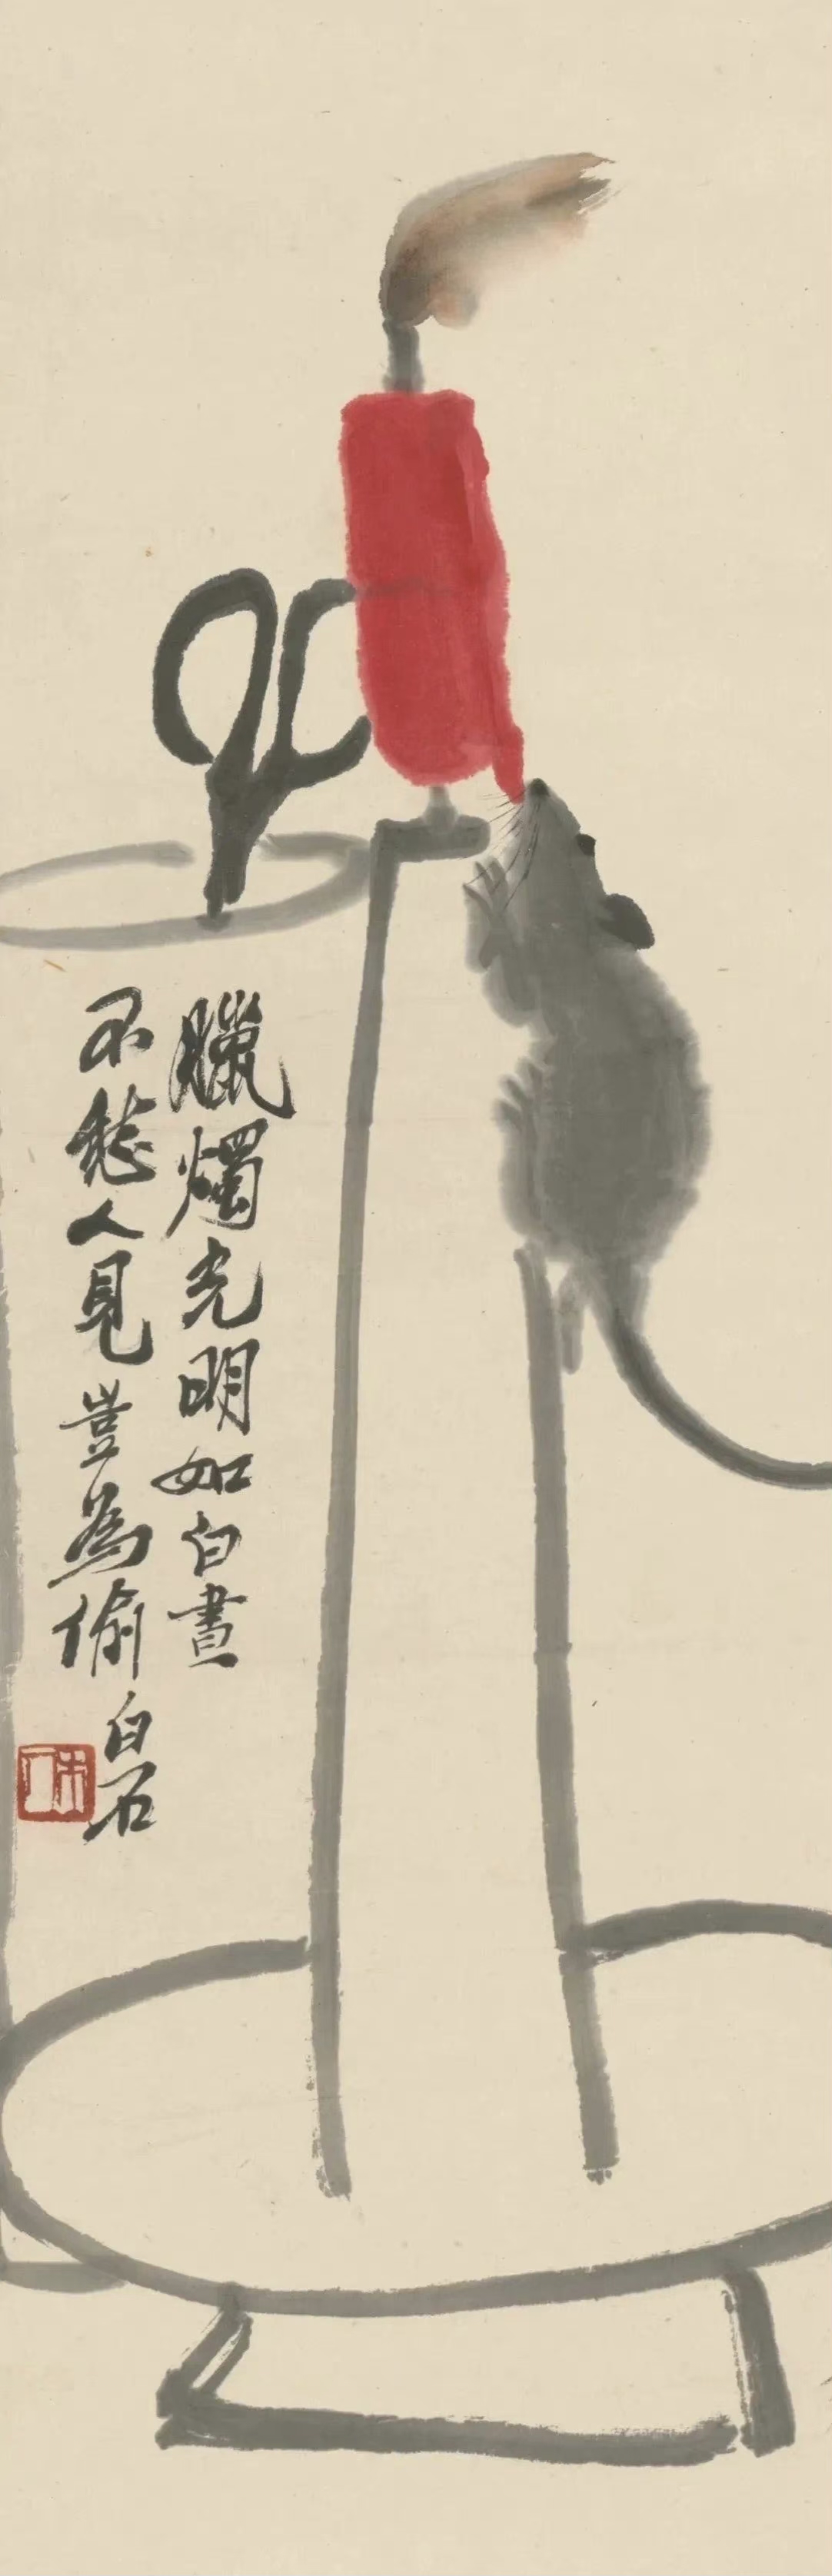 臘燭光明如白晝
不愁人見豈為偷
白石
木人